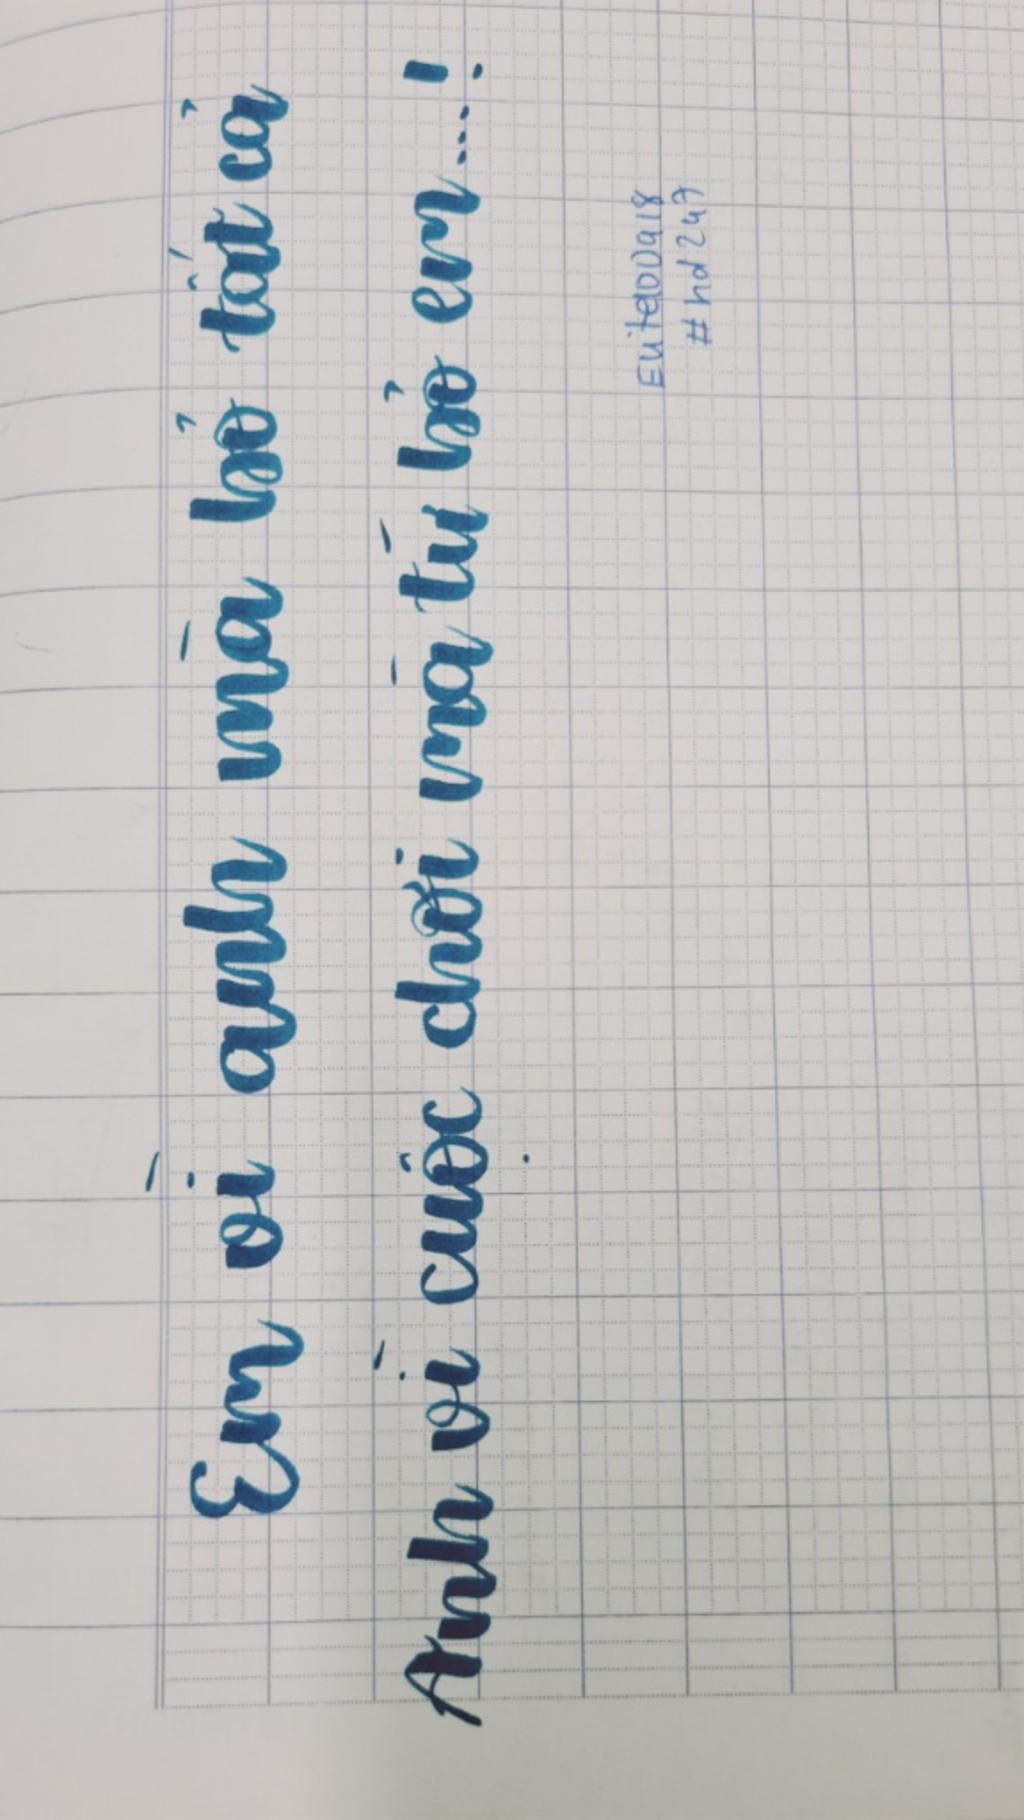 Em vì anh mà bỏ tất cả
Anh vì cuộc chơi mà từ bỏ em...!
#hd247